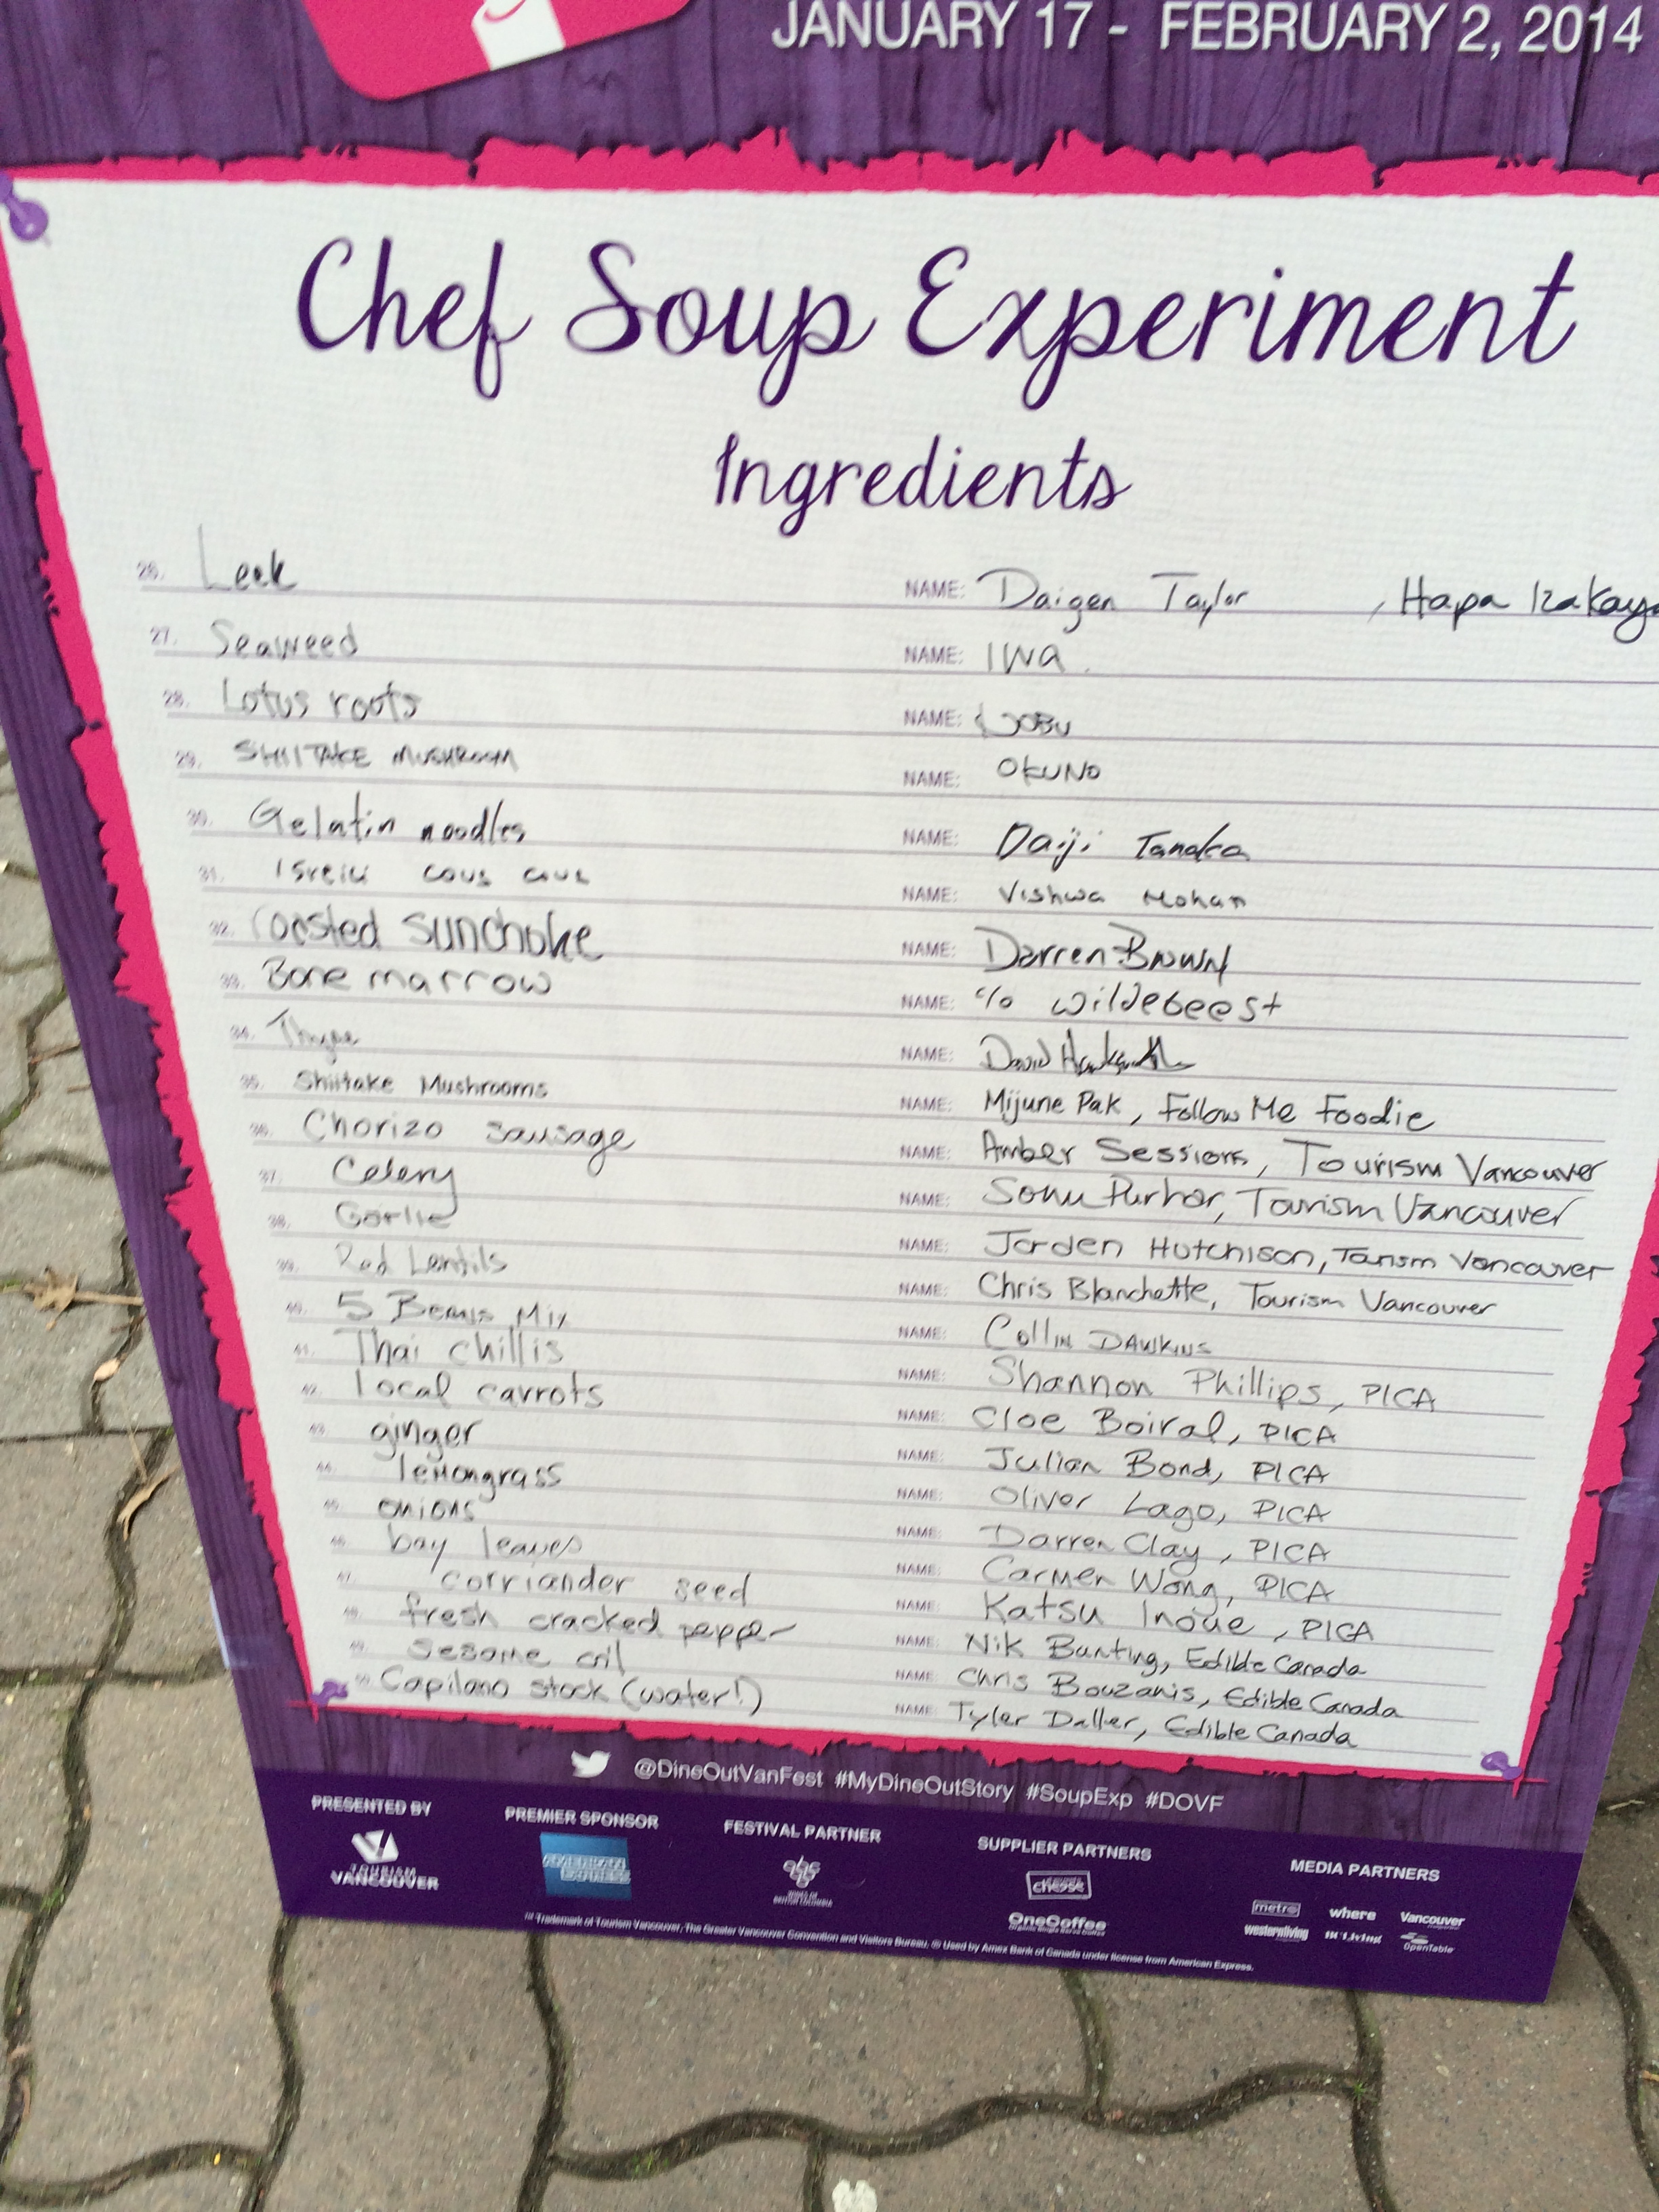 JANUARY 17 - FEBRUARY 2, 2014
Chef Soup Experiment
Ingredients
26. Leek NAME: Daigen Taylor , Hapa Izakaya
27. Seaweed NAME: IWA.
28. Lotus roots NAME:
29. SHIITAKE MUSHROOM NAME: OKUNO
30. Gelatin noodles NAME: Daiji Tanaka
31. cous cous NAME: Vishwa Mohan
32. roasted sunchoke NAME: Darren Brown
33. Bone marrow NAME: c/o wildebeest
34. Thyme NAME: David
35. Shiitake Mushrooms NAME: Mijune Pak, Follow Me Foodie
36. Chorizo sausage NAME: Amber Sessions, Tourism Vancouver
37. Celery NAME: Sonu Purhar, Tourism Vancouver
38. Garlic NAME: Jorden Hutchison, Tourism Vancouver
39. Red Lentils NAME: Chris Blanchette, Tourism Vancouver
40. 5 Beans Mix NAME: Collin DAWKINS
41. Thai chillis NAME: Shannon Phillips, PICA
42. local carrots NAME: Cloe Boiral, PICA
43. ginger NAME: Julian Bond, PICA
44. lemongrass NAME: Oliver Lago, PICA
45. onions NAME: Darren Clay, PICA
46. bay leaves NAME: Carmen Wong, PICA
47. corriander seed NAME: Katsu Inoue, PICA
48. fresh cracked pepper NAME: Nik Bunting, Edible Canada
49. Sesame oil NAME: Chris Bouzanis, Edible Canada
50 Capilano stock (water!) NAME: Tyler Daller, Edible Canada
@DineOutVanFest #MyDineOutStory #SoupExp #DOVF
PRESENTED BY PREMIER SPONSOR FESTIVAL PARTNER SUPPLIER PARTNERS MEDIA PARTNERS
TOURISM VANCOUVER AMERICAN EXPRESS WINES OF BRITISH COLUMBIA cheese metro where Vancouver
OneCoffee westernliving BC Living OpenTable
Trademark of Tourism Vancouver, The Greater Vancouver Convention and Visitors Bureau. ® Used by Amex Bank of Canada under license from American Express.